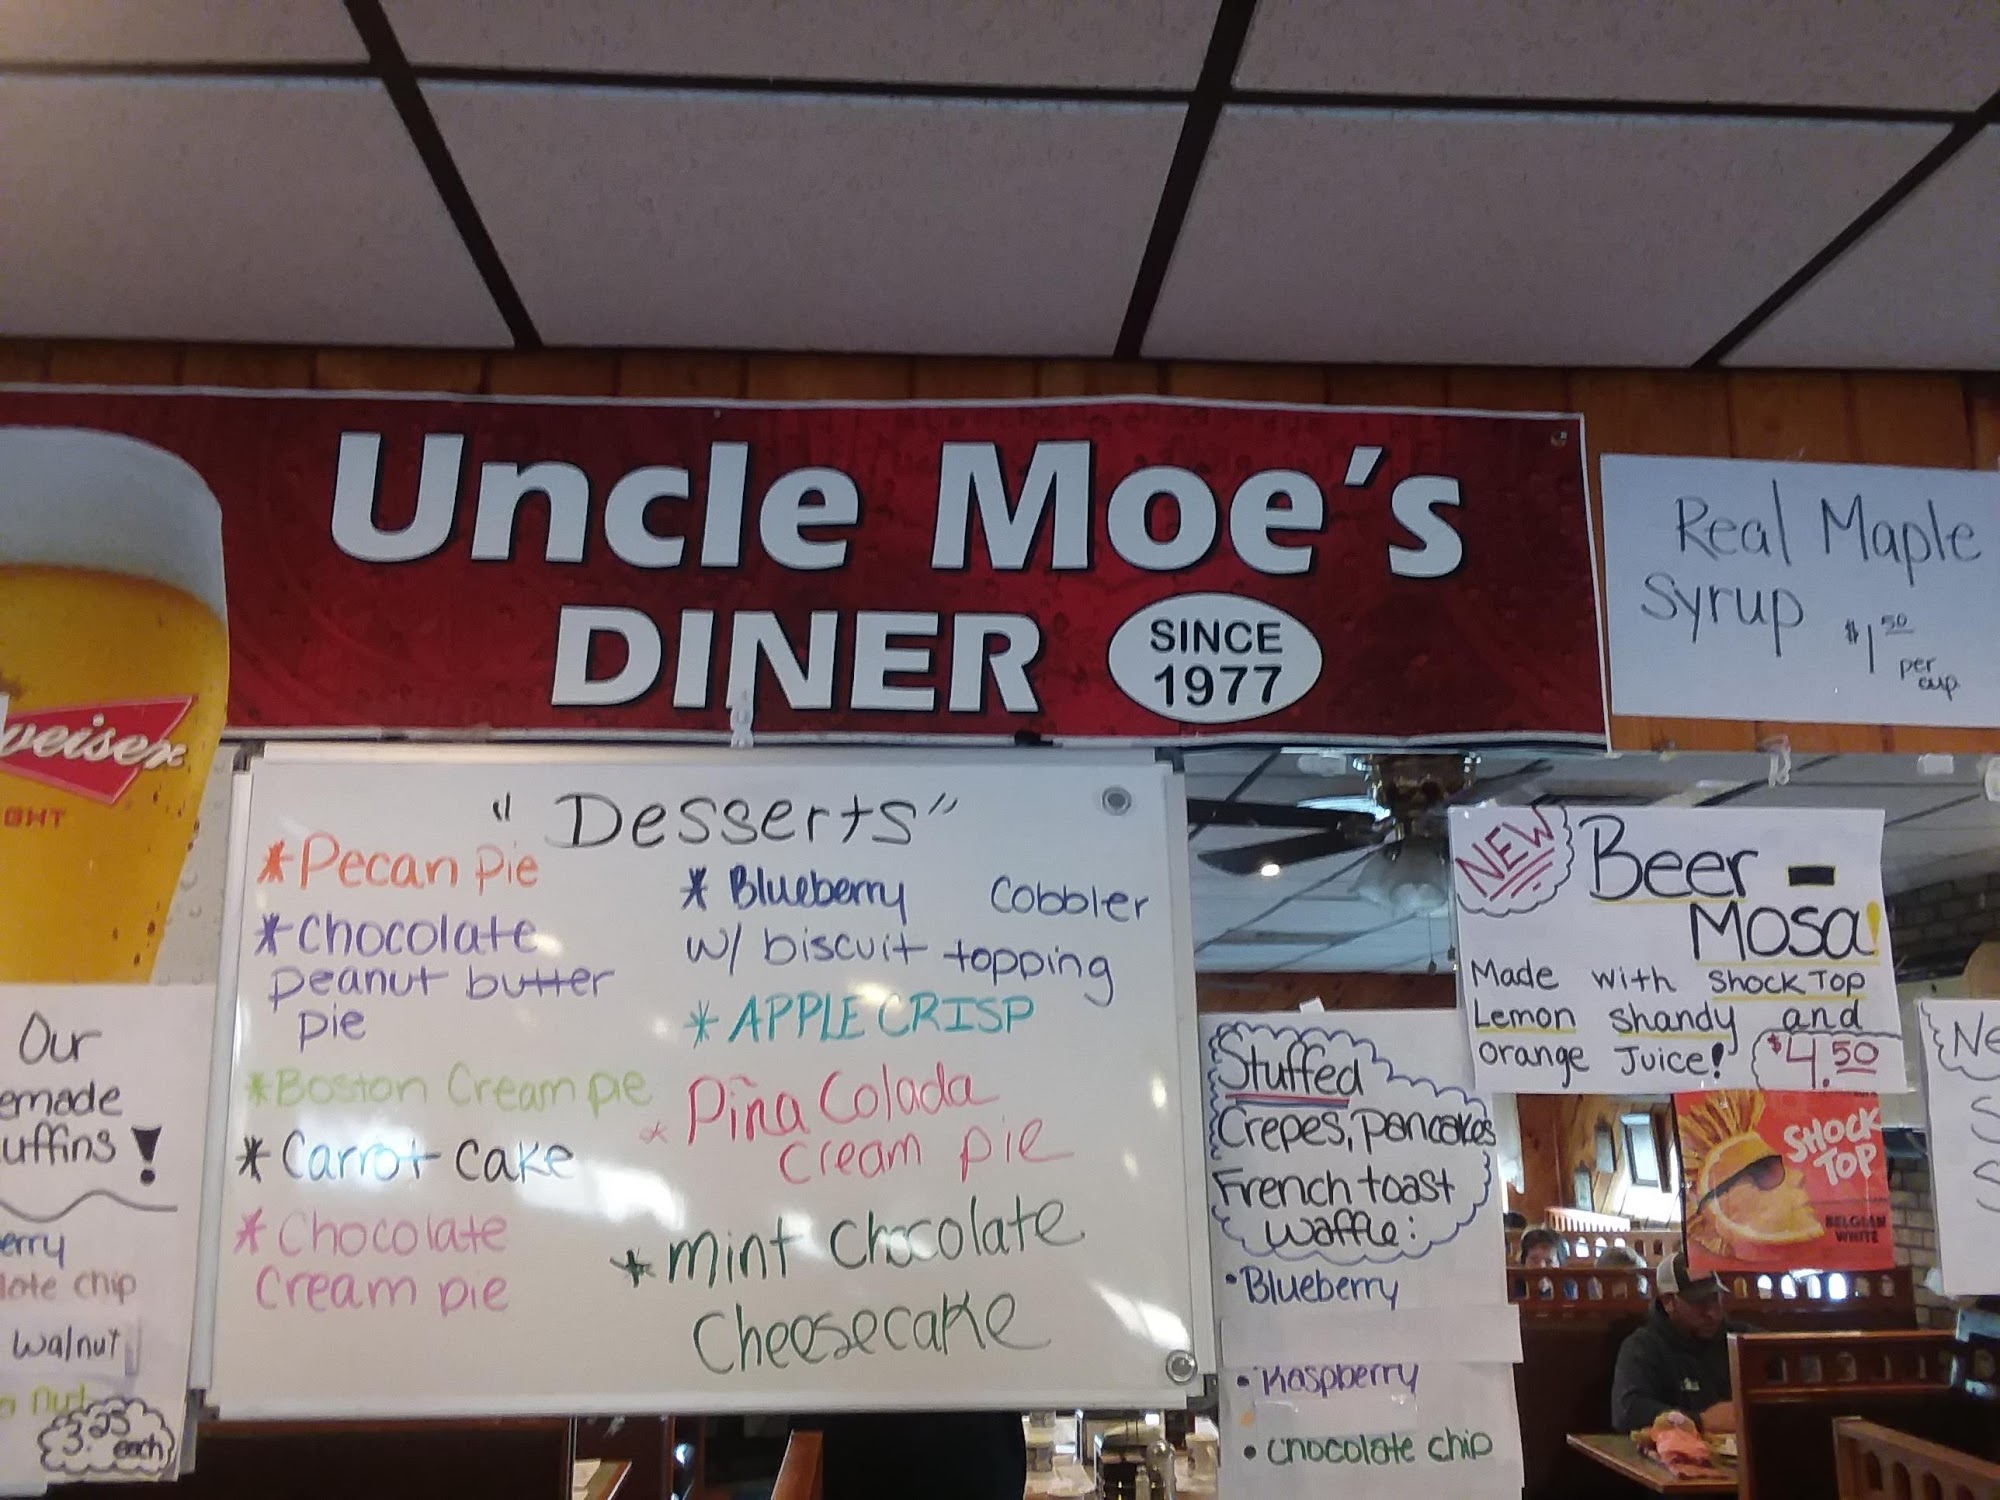 Uncle Moe's
DINER
SINCE
1977
Real Maple
Syrup
$1.50
per
cup
"Desserts"
*Pecan Pie
*Chocolate
peanut butter
pie
*Boston Cream pie
*Carrot Cake
*Chocolate
Cream pie
*Blueberry Cobbler
w/ biscuit topping
*APPLE CRISP
*Piña Colada
cream pie
*Mint Chocolate
Cheesecake
NEW
Beer-
Mosa!
Made with Shock Top
Lemon Shandy and
Orange Juice!
$4.50
SHOCK
TOP
BELGIAN
WHITE
Stuffed
Crepes, pancakes
French toast
waffle:
•Blueberry
•Raspberry
•Chocolate chip
Our
emade
uffins!
erry
late chip
walnut
nut
3.25
each
weiser
GHT
Ne
S
S